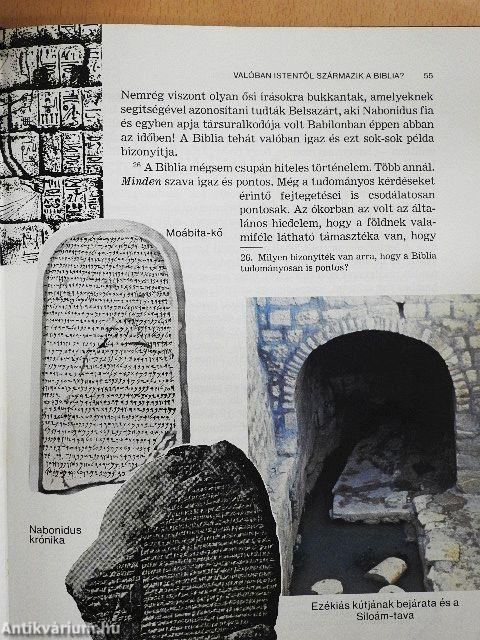 VALÓBAN ISTENTŐL SZÁRMAZIK A BIBLIA? 55
Nemrég viszont olyan ősi írásokra bukkantak, amelyeknek
segítségével azonosítani tudták Belsazárt, aki Nabonidus fia
és egyben apja társuralkodója volt Babilonban éppen abban
az időben! A Biblia tehát valóban igaz és ezt sok-sok példa
bizonyítja.
26 A Biblia mégsem csupán hiteles történelem. Több annál.
Minden szava igaz és pontos. Még a tudományos kérdéseket
érintő fejtegetései is csodálatosan
pontosak. Az ókorban az volt az álta-
lános hiedelem, hogy a földnek vala-
miféle látható támasztéka van, hogy
26. Milyen bizonyíték van arra, hogy a Biblia
tudományosan is pontos?
Moábita-kő
Nabonidus
krónika
Ezékiás kútjának bejárata és a
Siloám-tava
Antikvárium.hu